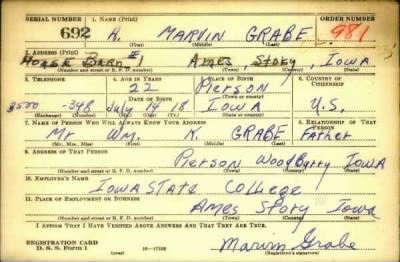 SERIAL NUMBER 1. NAME (Print) ORDER NUMBER
692 K. MARVIN GRABE 981
(First) (Middle) (Last)
2. ADDRESS (Print)
HORSE BARN #1 AMES, STORY, IOWA
(Number and street or R. F. D. number) (Town) (County) (State)
3. TELEPHONE 4. AGE IN YEARS 5. PLACE OF BIRTH 6. COUNTRY OF CITIZENSHIP
22 Pierson
DATE OF BIRTH (Town or county)
3500 -348 July 14 18 Iowa U.S.
(Exchange) (Number) (Mo.) (Day) (Yr.) (State or country)
7. NAME OF PERSON WHO WILL ALWAYS KNOW YOUR ADDRESS 8. RELATIONSHIP OF THAT PERSON
Mr Wm. K GRABE Father
(Mr., Mrs., Miss) (First) (Middle) (Last)
9. ADDRESS OF THAT PERSON
Pierson Woodbury IOWA
(Number and street or R. F. D. number) (Town) (County) (State)
10. EMPLOYER'S NAME
IOWA STATE College
11. PLACE OF EMPLOYMENT OR BUSINESS
Ames Story Iowa
(Number and street or R. F. D. number) (Town) (County) (State)
I AFFIRM THAT I HAVE VERIFIED ABOVE ANSWERS AND THAT THEY ARE TRUE.
REGISTRATION CARD
D. S. S. Form 1 (over) 16—17105 Marvin Grabe
(Registrant's signature)